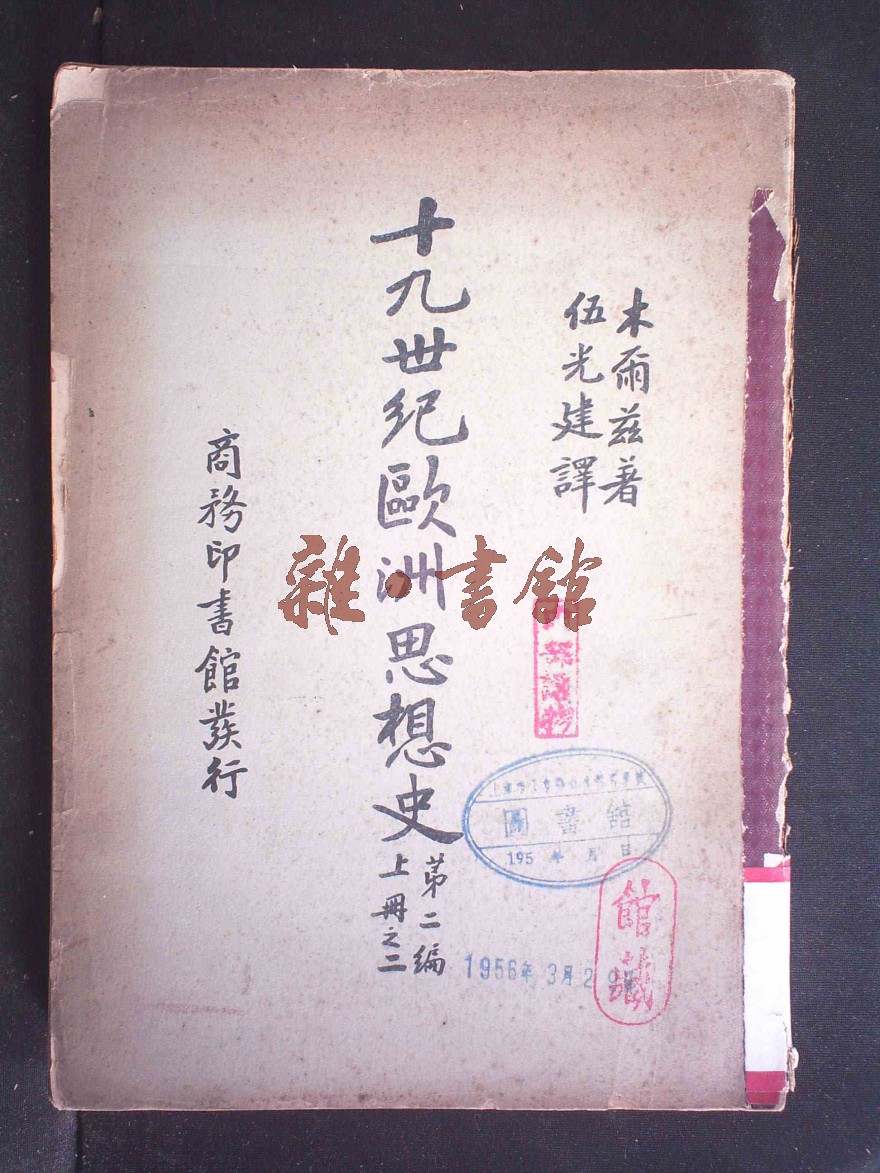 木爾茲著
伍光建譯
十九世紀歐洲思想史
第二編
上冊之二
商務印書館發行
雜·書館
圖書館
195 年 月 日
館藏
1956年3月2